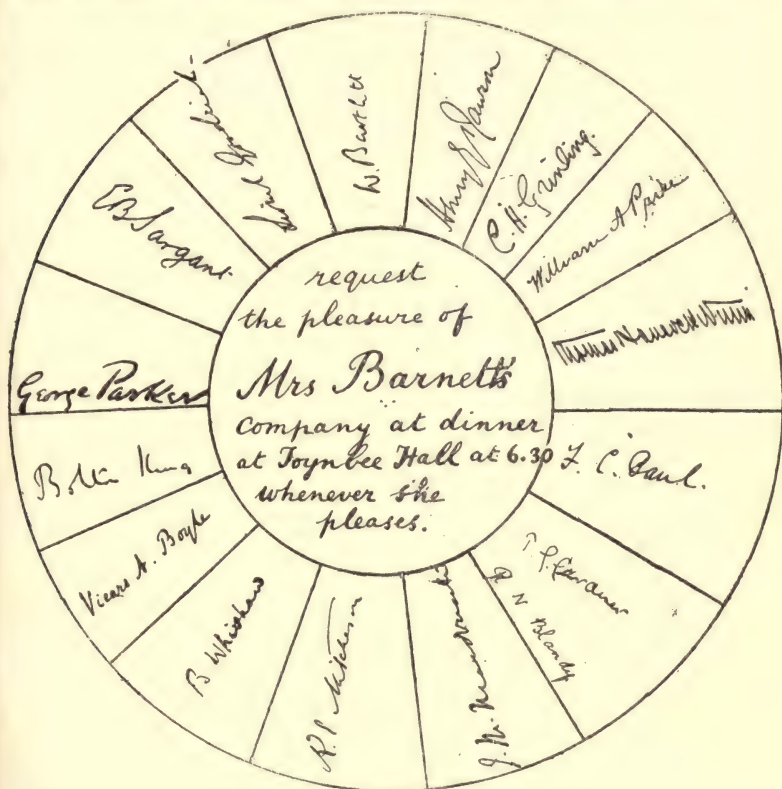 request
the pleasure of
Mrs Barnett's
company at dinner
at Toynbee Hall at 6.30
whenever she
pleases.
W. Bartlett
Henry
C. H. Grinling.
William A
Thomas Hancock Nunn
F. C.
T. G. Gardiner
R N Blandy
J. M.
R. E. Mitcheson
B Whishaw
Vicars A. Boyle
Bolton King
George Parker
EB Sargant